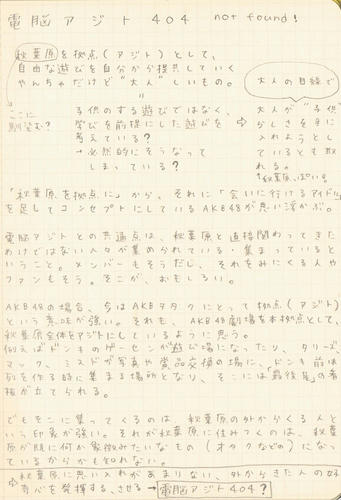 電脳アジト404 not found!
秋葉原を拠点(アジト)として、
自由な遊びを自分から提供していく
やんちゃだけど"大人"しいもの。
大人の目線で
ここに
馴染む?
子供のする遊びではなく、
学びを前提にした遊びを
考えている?
→必然的にそうなって
しまっている?
⇨
大人が"子供"
らしさを手に
入れようとし
ているとも取
れる。
↑秋葉原っぽい。
「秋葉原を拠点に」から、それに「会いに行けるアイドル」
を足してコンセプトにしているAKB48が思い浮かぶ。
電脳アジトとの共通点は、秋葉原と直接関わってきた
わけではない人々が集められている・集まっていると
いうこと。メンバーもそうだし、それをみにくる人や
ファンもそう。そこが、おもしろい。
AKB48の場合、今はAKBヲタクにとって拠点(アジト)
という意味が強い。それも、AKB劇場を本拠点として、
秋葉原全体をアジトにしているように思う。
例えばドンキのゲーセンが遊び場になったり、タリーズ、
マック、ミスドが写真や賞品交換の場に、ドンキ前は
列を作る時に集まる場所となり、そこには「最後尾」の看
板が立てられる。
でもそこに集ってくるのは、秋葉原の外からくる人と
いう印象が強い。それが秋葉原に住みつくのは、秋葉
原が既に何か象徴みたいなもの(オタクなどの)になっ
ているからかも知れない。
⇨秋葉原に思い入れがあまりない、外からきた人の好
奇心を発揮する、させる→電脳アジト404?